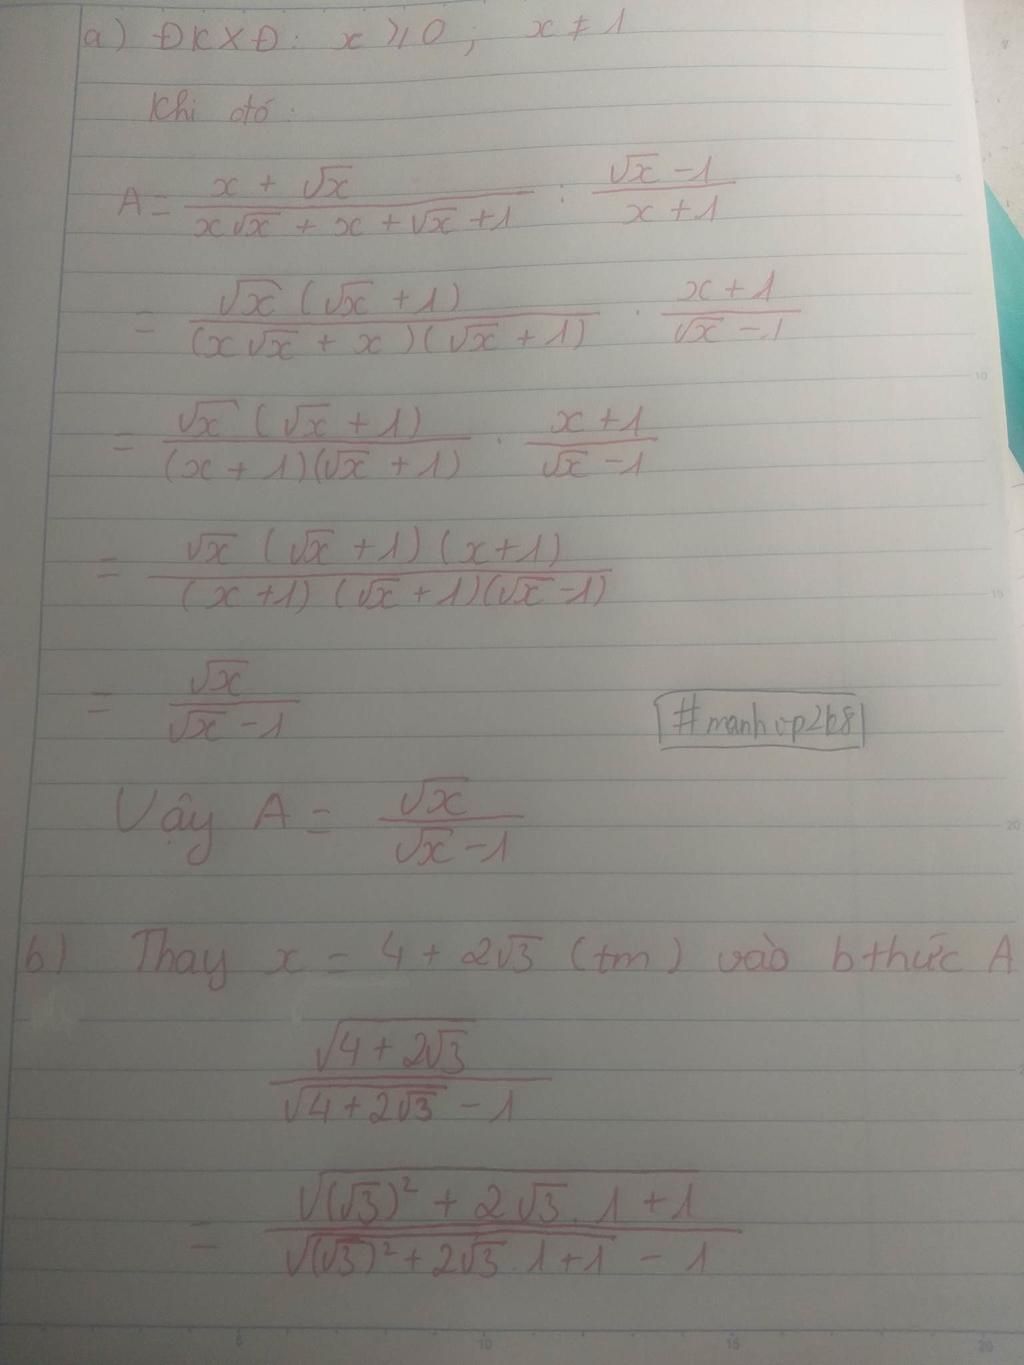 a) ĐKXĐ: x ⩾ 0; x ≠ 1
Khi đó:
A = (x + √x)/(x√x + x + √x + 1) : (√x - 1)/(x + 1)
= (√x (√x + 1))/((x√x + x)(√x + 1)) · (x + 1)/(√x - 1)
= (√x (√x + 1))/((x + 1)(√x + 1)) · (x + 1)/(√x - 1)
= (√x (√x + 1)(x + 1))/((x + 1)(√x + 1)(√x - 1))
= √x/(√x - 1)
#manhvp2k8
Vậy A = √x/(√x - 1)
b) Thay x = 4 + 2√3 (tm) vào bthức A
√(4 + 2√3)/(√(4 + 2√3) - 1)
= √((√3)² + 2√3 . 1 + 1)/(√((√3)² + 2√3 . 1 + 1) - 1)
5 10 15 20
5
10
15
20